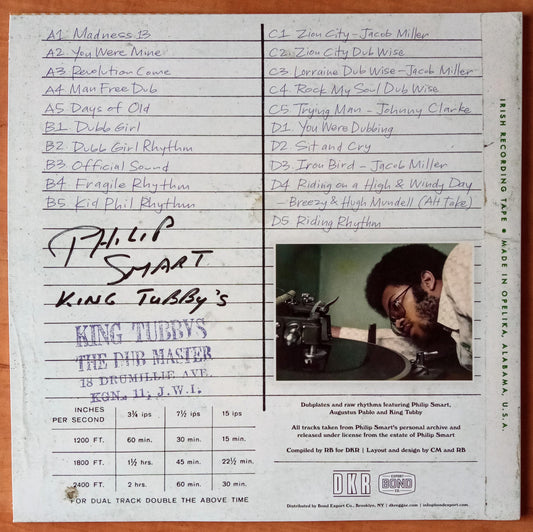 A1. Madness 13
A2. You Were Mine
A3. Revolution Come
A4 Man Free Dub
A5 Days of Old
B1. Dubb Girl
B2. Dubb Girl Rhythm
B3. Official Sound
B4. Fragile Rhythm
B5. Kid Phil Rhythm
C1. Zion City - Jacob Miller
C2. Zion City Dub Wise
C3. Lorraine Dub Wise - Jacob Miller
C4. Rock My Soul Dub Wise
C5. Trying Man - Johnny Clarke
D1. You Were Dubbing
D2. Sit and Cry
D3. Iron Bird - Jacob Miller
D4 Riding on a High & Windy Day
- Breezy & Hugh Mundell (Alt Take)
D5. Riding Rhythm
IRISH RECORDING TAPE ● MADE IN OPELIKA, ALABAMA, U.S.A.
PHILIP
SMART
KING TUBBY'S
KING TUBBYS
THE DUB MASTER
18 DRUMILLIE AVE.
KGN. 11, J.W.I.
INCHES PER SECOND 3¾ ips 7½ ips 15 ips
1200 FT. 60 min. 30 min. 15 min.
1800 FT. 1½ hrs. 45 min. 22½ min.
2400 FT. 2 hrs. 60 min. 30 min.
FOR DUAL TRACK DOUBLE THE ABOVE TIME
Dubplates and raw rhythms featuring Philip Smart,
Augustus Pablo and King Tubby
All tracks taken from Philip Smart's personal archive and
released under license from the estate of Philip Smart
Compiled by RB for DKR | Layout and design by CM and RB
DKR
EXPORT
BOND
CO.
Distributed by Bond Export Co., Brooklyn, NY | dkreggae.com | info@bondexport.com